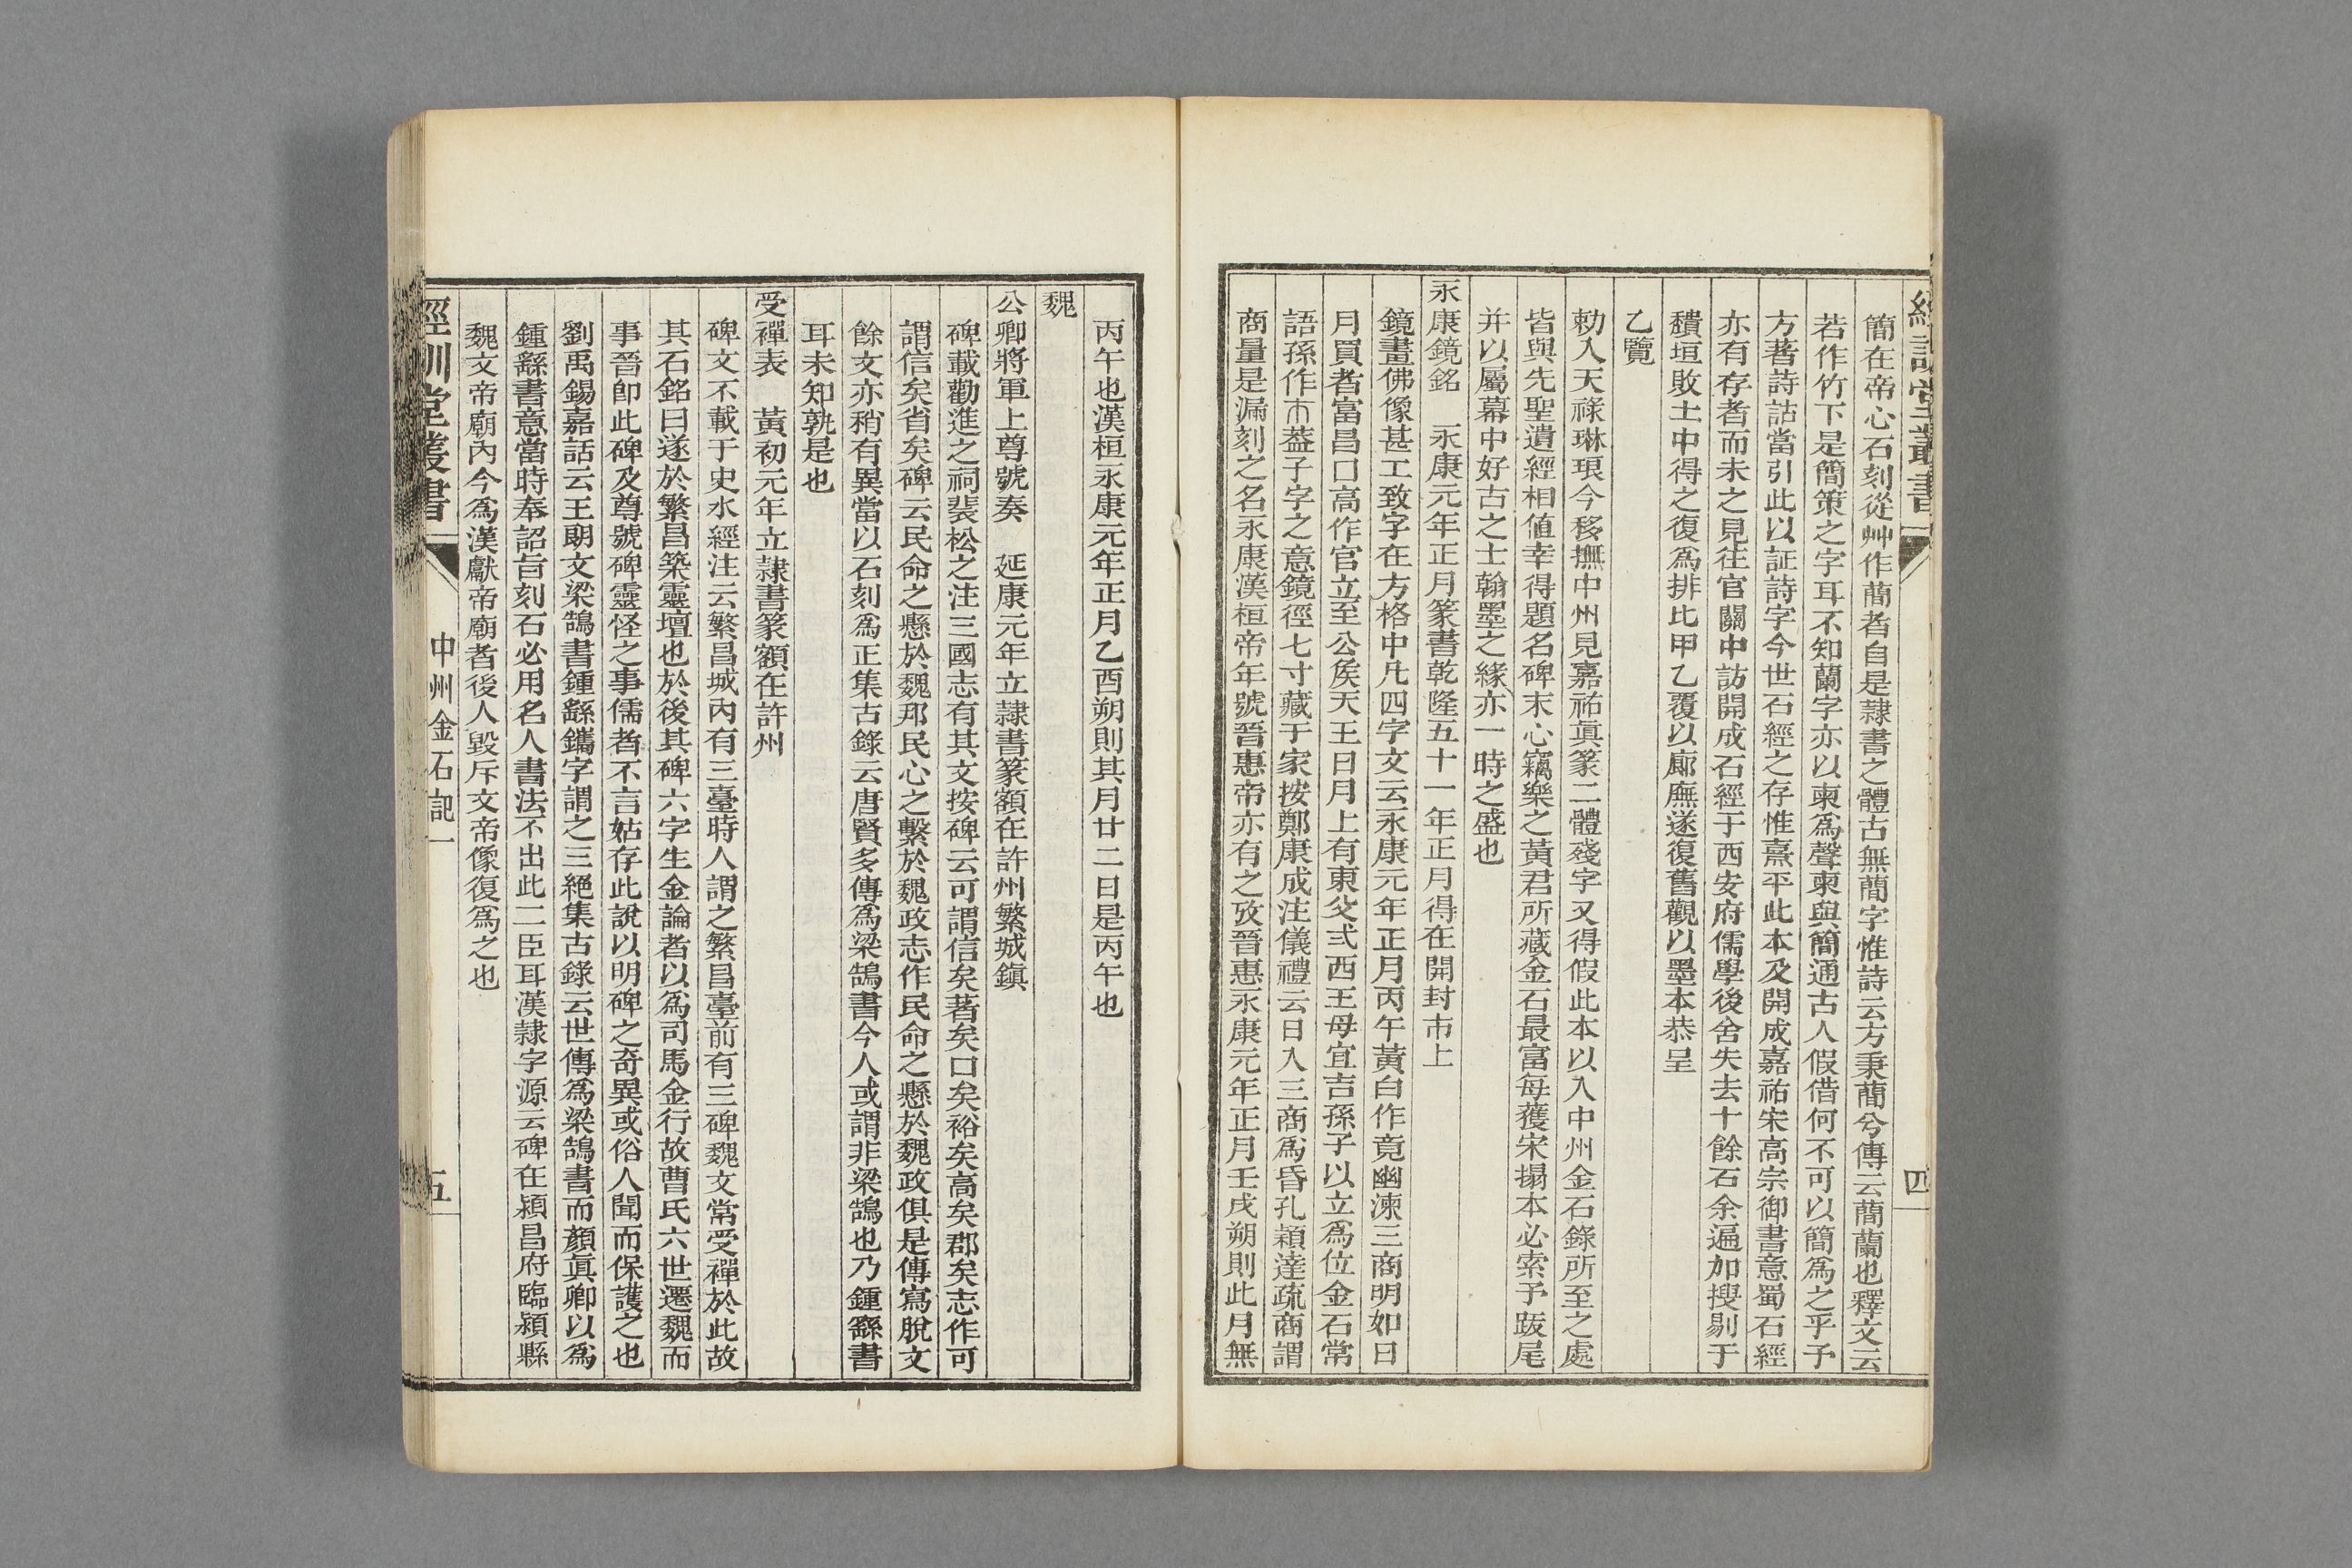 經訓堂叢書
四
簡在帝心石刻從艸作蕳者自是隸書之體古無蕳字惟詩云方秉蕳兮傳云蕳蘭也釋文云
若作竹下是簡策之字耳不知蘭字亦以柬爲聲柬與簡通古人假借何不可以簡爲之乎予
方著詩詁當引此以証詩字今世石經之存惟熹平此本及開成嘉祐宋高宗御書意蜀石經
亦有存者而未之見往官關中訪開成石經于西安府儒學後舍失去十餘石余遍加搜剔于
穨垣敗土中得之復爲排比甲乙覆以廊廡遂復舊觀以墨本恭呈
乙覽
勅入天祿琳琅今移撫中州見嘉祐眞篆二體殘字又得假此本以入中州金石錄所至之處
皆與先聖遺經相值幸得題名碑末心竊樂之黃君所藏金石最富每獲宋搨本必索予跋尾
并以屬幕中好古之士翰墨之緣亦一時之盛也
永康鏡銘　永康元年正月篆書乾隆五十一年正月得在開封市上
鏡畫佛像甚工致字在方格中凡四字文云永康元年正月丙午黃白作竟幽湅三商明如日
月買者富昌口高作官立至公矦天王日月上有東父弍西王母宜吉孫子以立爲位金石常
語孫作市葢子字之意鏡徑七寸藏于家按鄭康成注儀禮云日入三商爲昏孔穎達疏商謂
商量是漏刻之名永康漢桓帝年號晉惠帝亦有之攷晉惠永康元年正月壬戌朔則此月無
丙午也漢桓永康元年正月乙酉朔則其月廿二日是丙午也
魏
公卿將軍上尊號奏　延康元年立隸書篆額在許州繁城鎭
碑載勸進之祠裴松之注三國志有其文按碑云可謂信矣著矣口矣裕矣高矣郡矣志作可
謂信矣省矣碑云民命之懸於魏邦民心之繫於魏政志作民命之懸於魏政俱是傳寫脫文
餘文亦稍有異當以石刻爲正集古錄云唐賢多傳爲梁鵠書今人或謂非梁鵠也乃鍾繇書
耳未知孰是也
受禪表　黃初元年立隸書篆額在許州
碑文不載于史水經注云繁昌城內有三臺時人謂之繁昌臺前有三碑魏文帝受禪於此故
其石銘曰遂於繁昌築靈壇也於後其碑六字生金論者以爲司馬金行故曹氏六世遷魏而
事晉卽此碑及尊號碑靈怪之事儒者不言姑存此說以明碑之奇異或俗人聞而保護之也
劉禹錫嘉話云王朗文梁鵠書鍾繇鐫字謂之三絕集古錄云世傳爲梁鵠書而顏眞卿以爲
鍾繇書意當時奉詔旨刻石必用名人書法不出此二臣耳漢隸字源云碑在潁昌府臨潁縣
魏文帝廟內今爲漢獻帝廟者後人毀斥文帝像復爲之也
經訓堂叢書
中州金石記一
五